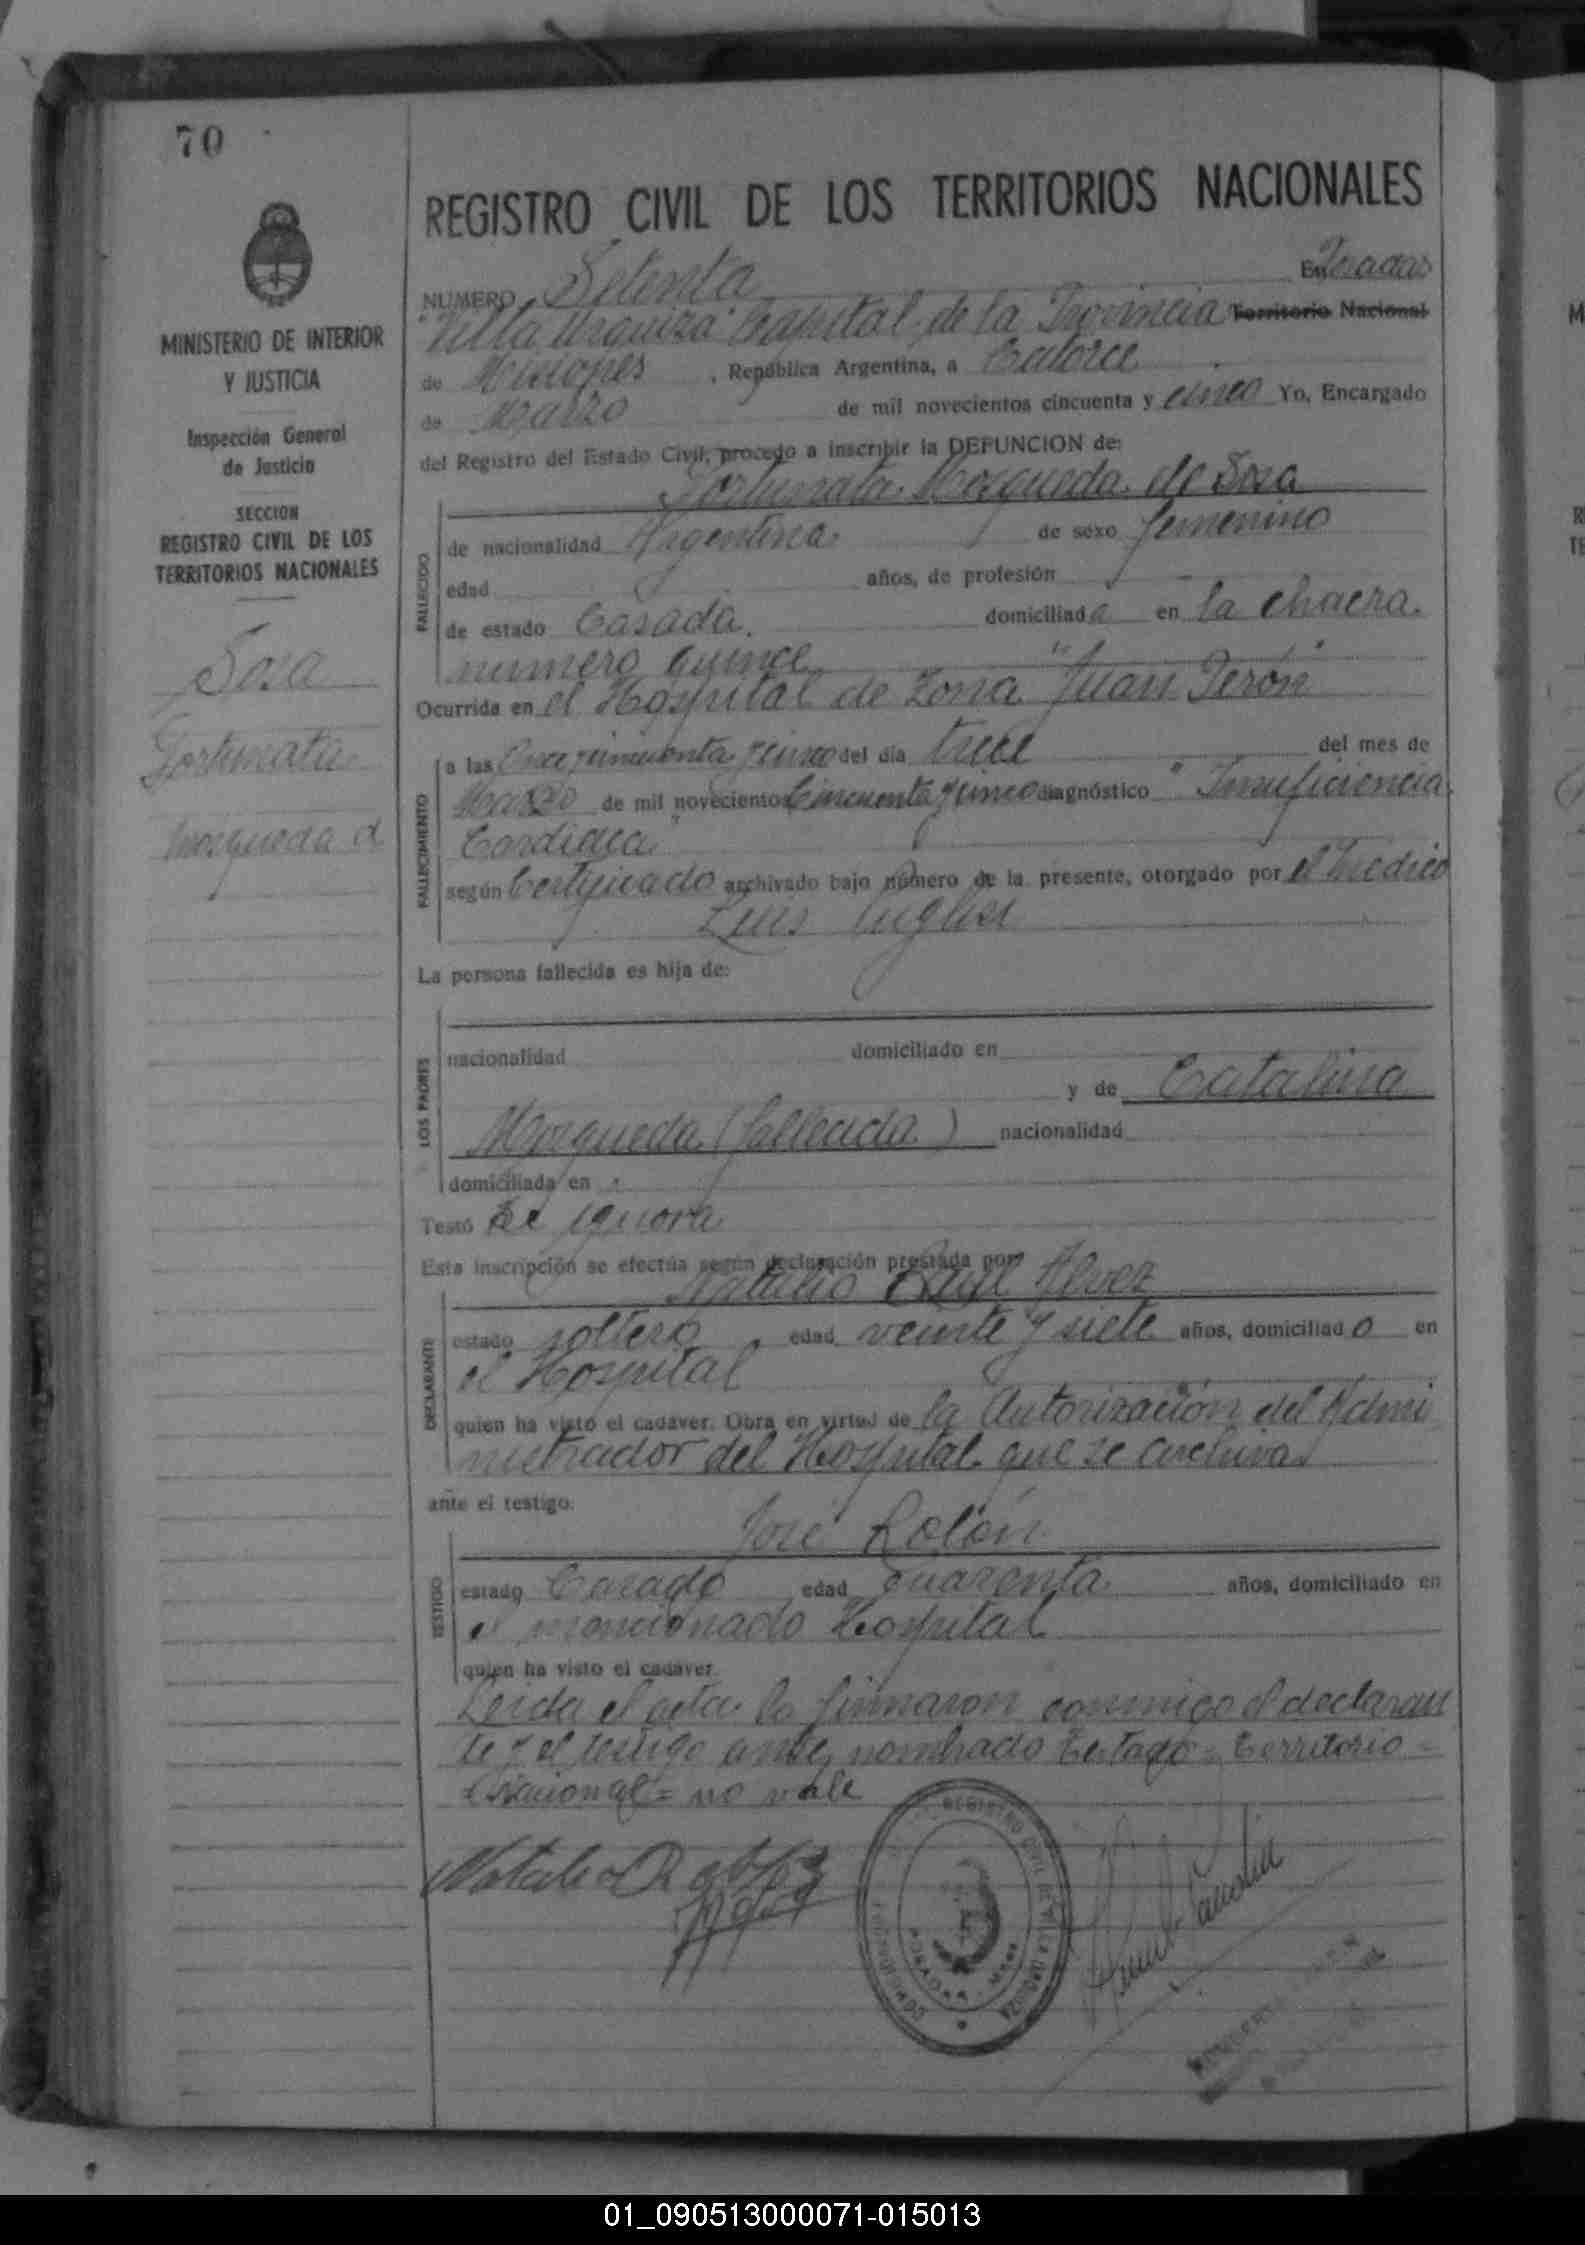 70
MINISTERIO DE INTERIOR
Y JUSTICIA
Inspección General
de Justicia
SECCION
REGISTRO CIVIL DE LOS
TERRITORIOS NACIONALES
Sosa
Fortunata
Mosqueda d
REGISTRO CIVIL DE LOS TERRITORIOS NACIONALES
NUMERO Setenta En Posadas
"Villa Urquiza" Capital de la Provincia Territorio Nacional
de Misiones, República Argentina, a Catorce
de Marzo de mil novecientos cincuenta y cinco Yo, Encargado
del Registro del Estado Civil, procedo a inscribir la DEFUNCION de:
Fortunata Mosqueda de Sosa
FALLECIDO
de nacionalidad Argentina de sexo femenino
edad años, de profesión
de estado Casada. domiciliada en la chacra
numero quince
Ocurrida en el Hospital de Zona "Juan Perón"
FALLECIMIENTO
a las Once y cincuenta y cinco del día trece del mes de
Marzo de mil novecientos Cincuenta y cinco diagnóstico "Insuficiencia
Cardiaca"
según Certificado archivado bajo número de la presente, otorgado por el Médico
Luis
La persona fallecida es hija de:
LOS PADRES
nacionalidad domiciliado en
y de Catalina
Mosqueda (fallecida) nacionalidad
domiciliada en
Testó Se ignora
Esta inscripción se efectúa según declaración prestada por
Natalio Alvez
DECLARANTE
estado soltero, edad veinte y siete años, domiciliado en
el Hospital
quien ha visto el cadáver. Obra en virtud de la Autorización del Admi
nistrador del Hospital que se archiva
ante el testigo:
José Rolón
TESTIGO
estado Casado, edad cuarenta años, domiciliado en
el mencionado Hospital
quien ha visto el cadáver.
Leida el acta la firmaron conmigo el declaran
te y el testigo antes nombrado Testado = Territorio =
Nacional = no vale
REGISTRO CIVIL DE VILLA URQUIZA
POSADAS - Mnes
01_090513000071-015013